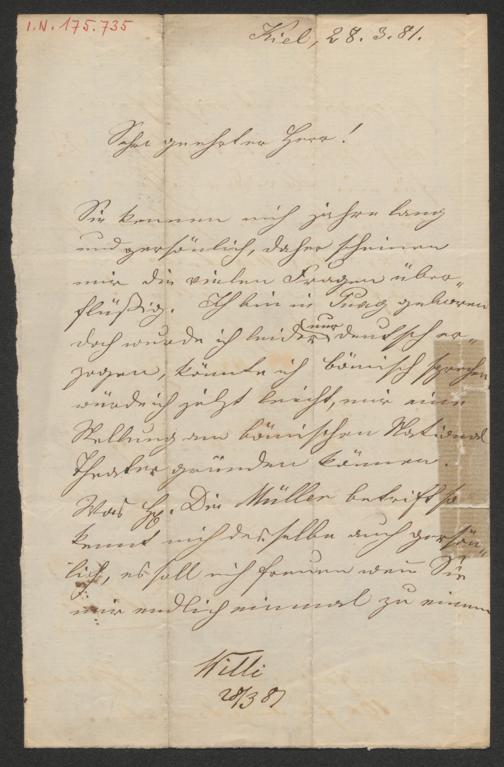 I.N. 175.735
Kiel, 28.3.81.
Sehr geehrter Herr!
Sie kennen mich jahre lang
und persönlich, daher scheinen
mir die vielen Fragen über„
flüßig. Ich bin in Prag geboren
doch wurde ich leider nur deutsch er„
zogen, könnte ich bömisch sprechen
würde ich jetzt leicht, mir eine
Stellung am bömischen National
Theater gründen können.
Was Dir Müller betrift so
kennt mich derselbe auch persön„
lich, es soll mich freuen wenn Sie
mir endlich einmal zu einem
Willi
28/3 81